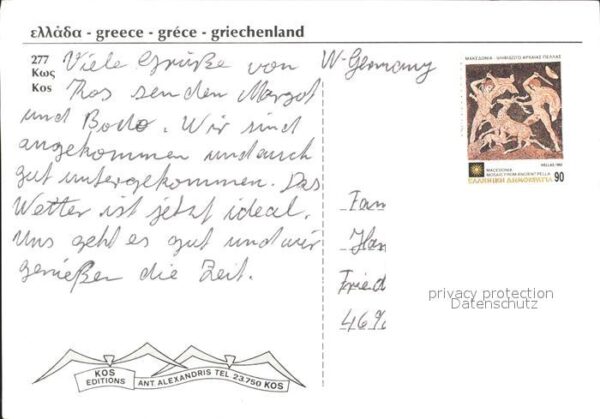 ελλάδα - greece - gréce - griechenland
277
Κως
Kos
Viele Grüße von W-Germany
Kos senden Margot
und Bodo. Wir sind
angekommen und auch
gut untergekommen. Das
Wetter ist jetzt ideal.
Uns geht es gut und wir
genießen die Zeit.
ΜΑΚΕΔΟΝΙΑ - ΨΗΦΙΔΩΤΟ ΑΡΧΑΙΑΣ ΠΕΛΛΑΣ
HELLAS
MACEDONIA
MOSAIC FROM ANCIENT PELLA
ΕΛΛΗΝΙΚΗ ΔΗΜΟΚΡΑΤΙΑ 90
Fam
Han
Fried
privacy protection
Datenschutz
KOS
EDITIONS
ANT. ALEXANDRIS TEL 23.750 KOS